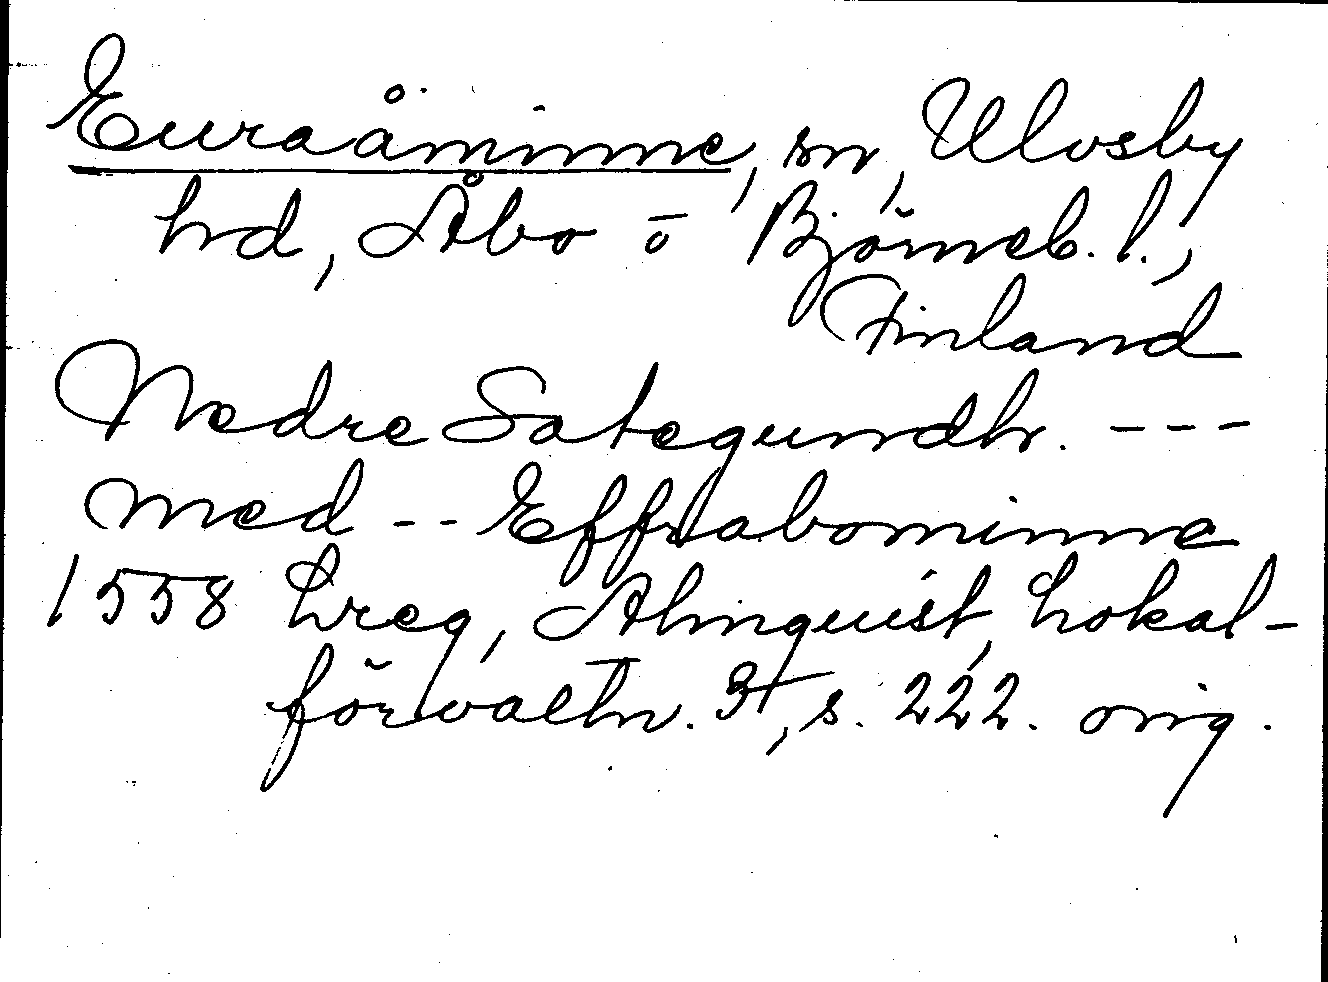 Euraåminne, sn, Ulvsby
hd, Åbo o Björneb. l.,
Finland
Nedre Sategundh. ---
med -- Effraabominne
1558 Lreg, Almquist, Lokal-
förvaltn. 3, s. 222. orig.